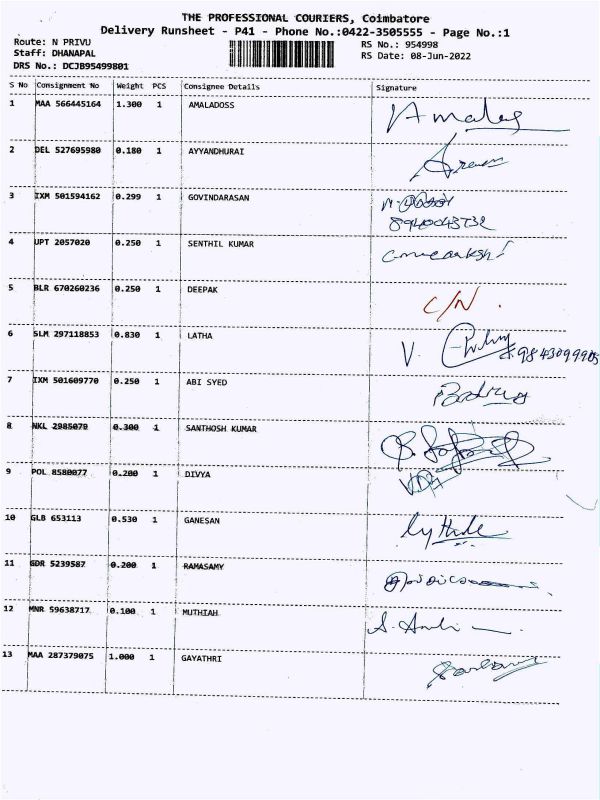 THE PROFESSIONAL COURIERS, Coimbatore
Delivery Runsheet - P41 - Phone No.:0422-3505555 - Page No.:1
Route: N PRIVU
Staff: DHANAPAL
DRS No.: DCJB95499801
RS No.: 954998
RS Date: 08-Jun-2022
S No Consignment No Weight PCS Consignee Details Signature
1 MAA 566445164 1.300 1 AMALADOSS
2 DEL 527695980 0.180 1 AYYANDHURAI
3 IXM 501594162 0.299 1 GOVINDARASAN
8940043732
4 UPT 2057020 0.250 1 SENTHIL KUMAR
5 BLR 670260236 0.250 1 DEEPAK C/N .
6 SLM 297118853 0.830 1 LATHA V.
9843099905
7 IXM 501609770 0.250 1 ABI SYED
8 NKL 2985079 0.300 1 SANTHOSH KUMAR
9 POL 8580077 0.200 1 DIVYA
10 GLB 653113 0.530 1 GANESAN
11 GDR 5239587 0.200 1 RAMASAMY
12 MNR 59638717 0.100 1 MUTHIAH
13 MAA 287379075 1.000 1 GAYATHRI